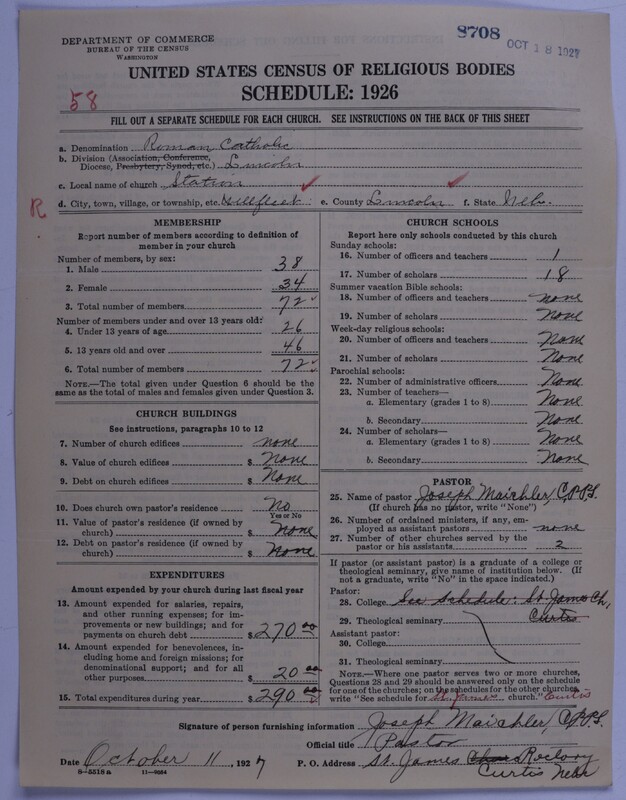 DEPARTMENT OF COMMERCE
BUREAU OF THE CENSUS
WASHINGTON
8708
OCT 18 1927
UNITED STATES CENSUS OF RELIGIOUS BODIES
SCHEDULE: 1926
58
FILL OUT A SEPARATE SCHEDULE FOR EACH CHURCH. SEE INSTRUCTIONS ON THE BACK OF THIS SHEET
a. Denomination Roman Catholic
b. Division (Association, Conference, Diocese, Presbytery, Synod, etc.) Lincoln
c. Local name of church Station
R
d. City, town, village, or township, etc. e. County Lincoln f. State Neb.
MEMBERSHIP
Report number of members according to definition of
member in your church
Number of members, by sex:
1. Male 38
2. Female 34
3. Total number of members 72
Number of members under and over 13 years old:
4. Under 13 years of age 26
5. 13 years old and over 46
6. Total number of members 72
NOTE.—The total given under Question 6 should be
same as the total of males and females given under Question 3.
CHURCH BUILDINGS
See instructions, paragraphs 10 to 12
7. Number of church edifices none
8. Value of church edifices $ None
9. Debt on church edifices $ None
10. Does church own pastor's residence No
Yes or No
11. Value of pastor's residence (if owned by
church) $ None
12. Debt on pastor's residence (if owned by
church) $ None
EXPENDITURES
Amount expended by your church during last fiscal year
13. Amount expended for salaries, repairs,
and other running expenses; for im-
provements or new buildings; and for
payments on church debt $ 270 00
14. Amount expended for benevolences, in-
cluding home and foreign missions; for
denominational support; and for all
other purposes 20 00
15. Total expenditures during year $ 290 00
CHURCH SCHOOLS
Report here only schools conducted by this church
Sunday schools:
16. Number of officers and teachers 1
17. Number of scholars 18
Summer vacation Bible schools:
18. Number of officers and teachers none
19. Number of scholars None
Week-day religious schools:
20. Number of officers and teachers None
21. Number of scholars None
Parochial schools:
22. Number of administrative officers None
23. Number of teachers—
a. Elementary (grades 1 to 8) None
b. Secondary None
24. Number of scholars—
a. Elementary (grades 1 to 8) None
b. Secondary None
PASTOR
25. Name of pastor Joseph Maichler, C.P.P.S.
(If church has no pastor, write "None")
26. Number of ordained ministers, if any, em-
ployed as assistant pastors none
27. Number of other churches served by the
pastor or his assistants 2
If pastor (or assistant pastor) is a graduate of a college or
theological seminary, give name of institution below. (If
not a graduate, write "No" in the space indicated.)
Pastor:
28. College See Schedule: St. James Ch,
29. Theological seminary Curtis
Assistant pastor:
30. College
31. Theological seminary
NOTE.—Where one pastor serves two or more churches,
Questions 28 and 29 should be answered only on the schedule
for one of the churches; on the schedules for the other churches,
write "See schedule for St. James church." Curtis
Signature of person furnishing information Joseph Maichler, C.P.P.S.
Official title Pastor
Date October 11, 1927 P. O. Address St. James Rectory
Curtis Nebr
8-5518a 11-9034